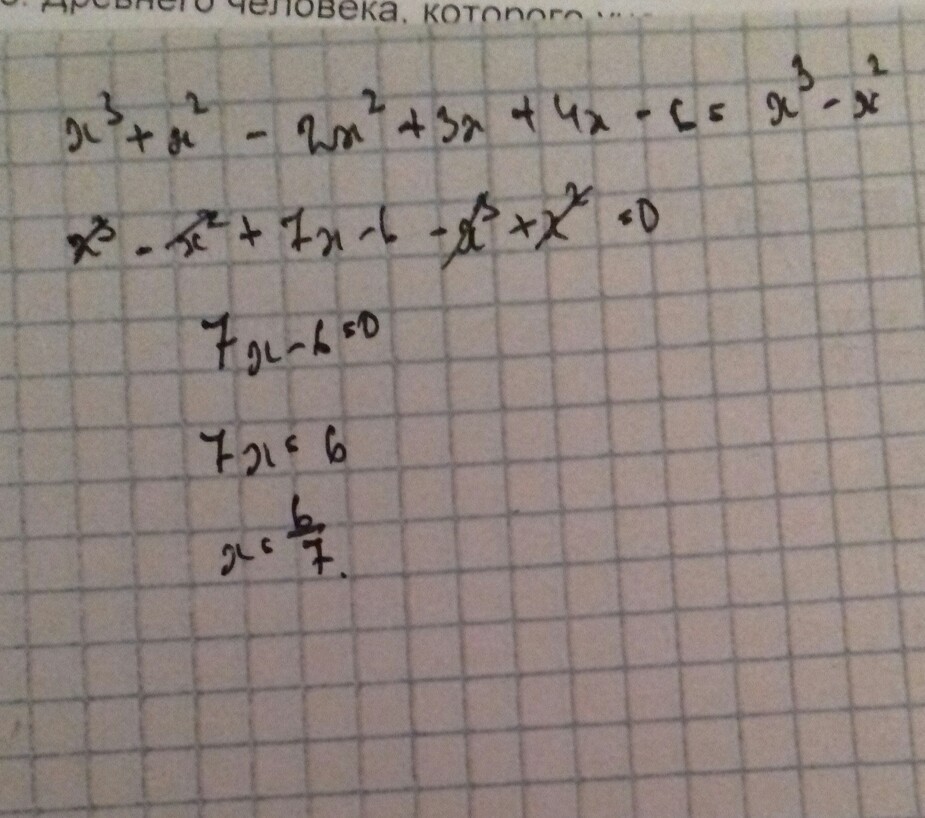 древнего человека, которого
x³ + x² - 2x² + 3x + 4x - 6 = x³ - x²
x³ - x² + 7x - 6 - x³ + x² = 0
7x - 6 = 0
7x = 6
x = 6/7.